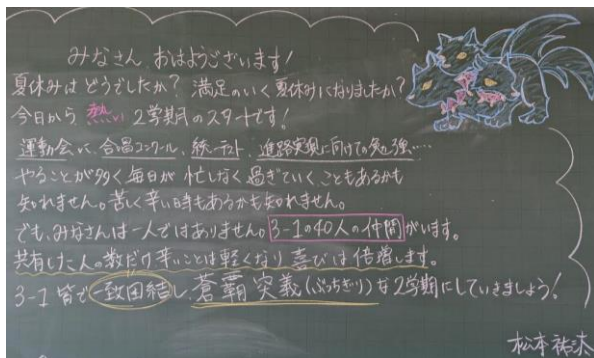 みなさん おはようございます!
夏休みはどうでしたか? 満足のいく夏休みになりましたか?
今日から 熱い 2学期のスタートです!
運動会に、合唱コンクール、統一テスト、進路実現に向けての勉強….
やることが多く毎日が忙しなく過ぎていくこともあるかも
知れません。苦しく辛い時もあるかも知れません。
でも、みなさんは一人ではありません。3-1の40人の仲間がいます。
共有した人の数だけ辛いことは軽くなり 喜びは倍増します。
3-1 皆で一致団結し、蒼覇突義(ぶっちぎり)な2学期にしていきましょう!
松本祐